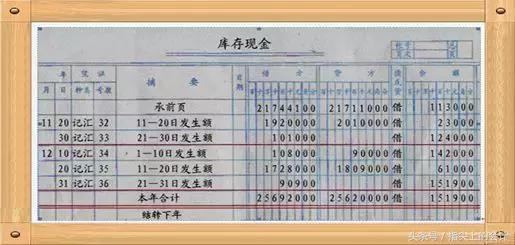 库存现金
年 凭证 摘要 日期 借方 贷方 借或贷 余额
月 日 种类 号数
承前页 21744100 21711000 借 113000
11 20 记汇 32 11—20日发生额 1920000 2010000 借 23000
30 记汇 33 21—30日发生额 101000 借 124000
12 10 记汇 34 1—10日发生额 108000 90000 借 142000
20 记汇 35 11—20日发生额 1728000 1809000 借 61000
31 记汇 36 21—31日发生额 90900 借 151900
本年合计 25692000 25620000 借 151900
结转下年
头条号/指尖上的会计